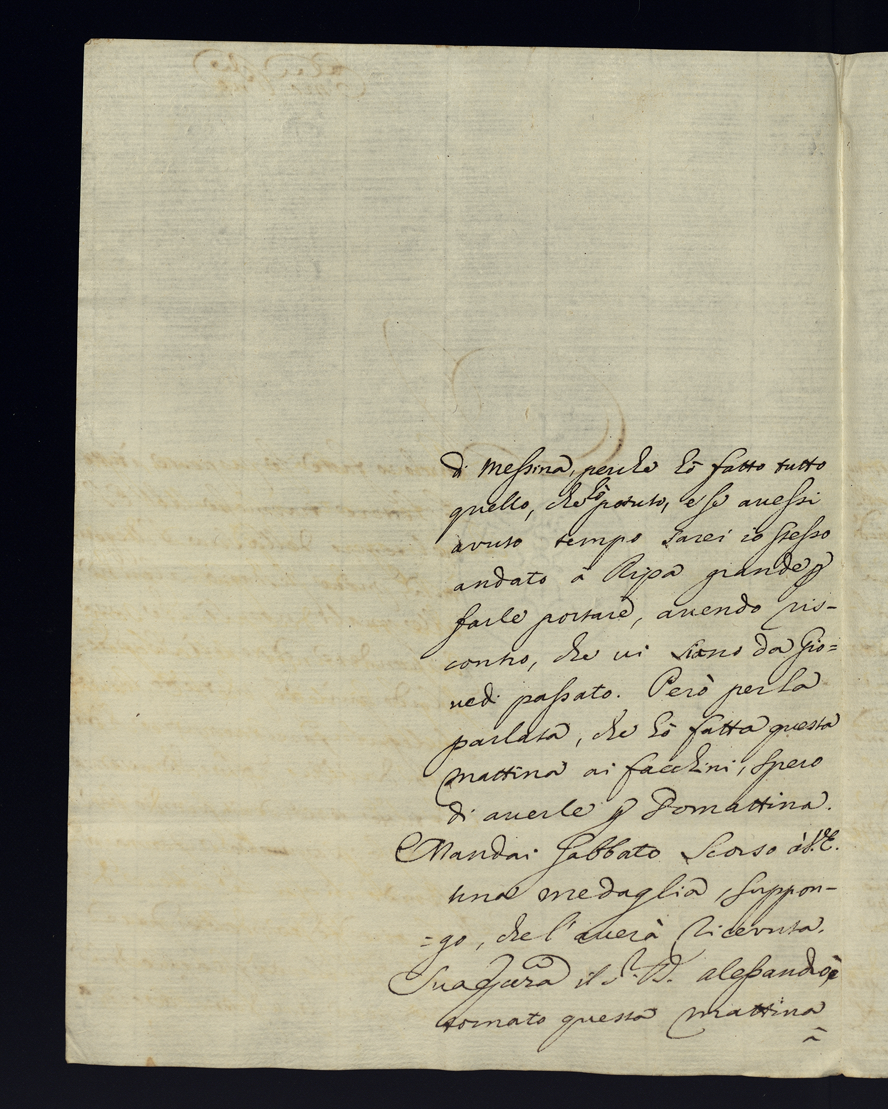 di Messina, perche hò fatto tutto
quello, che hò potuto, e se avessi
avuto tempo sarei io stesso
andato à Ripa grande p
farle portare, avendo ris-
contro, che vi siano da Gio=
vedi passato. Però per la
parlata, che hò fatta questa
mattina ai facchini, spero
di averle p Domattina.
Mandai Sabbato scorso à V.E.
una medaglia, suppon-
=go, che l'averà ricevuta.
Sua il S.r D. Alessandro è
tornato questa mattina
à